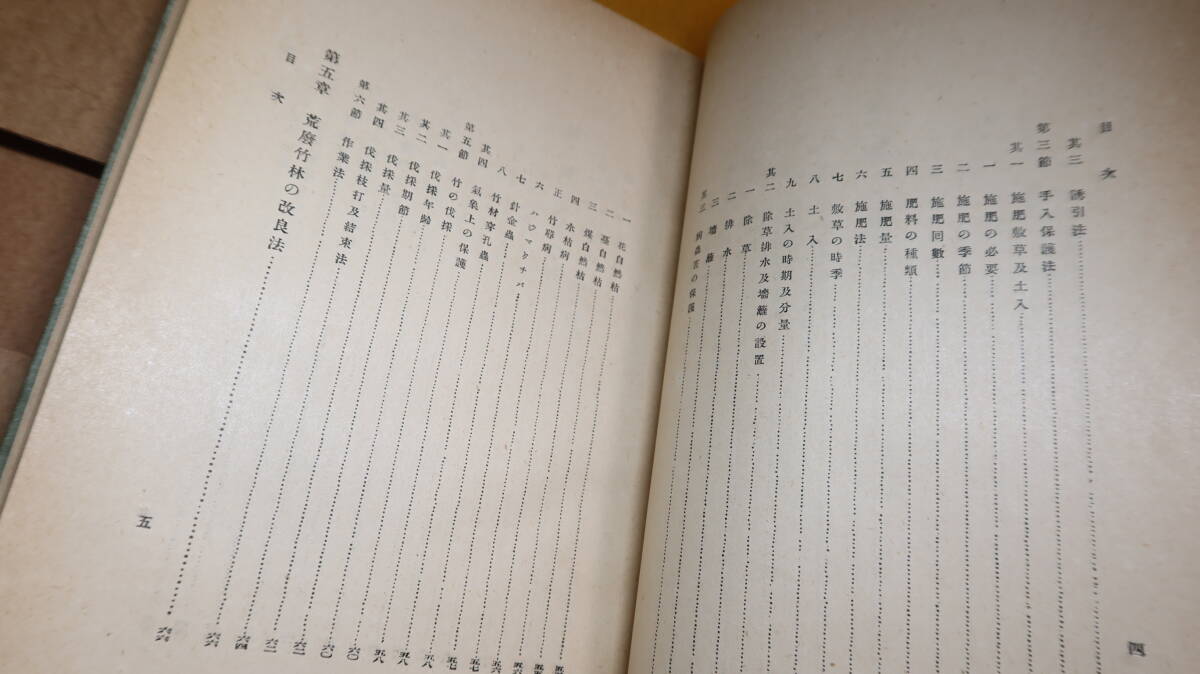 目次
其三 誘引法
第三節 手入保護法
其一 施肥敷草及土入
一 施肥の必要
二 施肥の季節
三 施肥回數
四 肥料の種類
五 施肥量
六 施肥法
七 敷草の時季
八 土入
九 土入の時期及分量
其二 除草排水及墻籬の設置
一 除草
二 排水
三 墻籬
其三 病蟲害の保護
四
一 花自然枯
二 自然枯
三 煤自然枯
四 水枯病
正
六 ハウマクチバ
七 針金蟲
八 竹材穿孔蟲
其四 氣象上の保護
第五節 竹の伐採
其一 伐採年齡
其二 伐採期節
其三 伐採量
其四 伐採枝打及結束法
第六節 作業法
第五章 荒廢竹林の改良法
目次
五